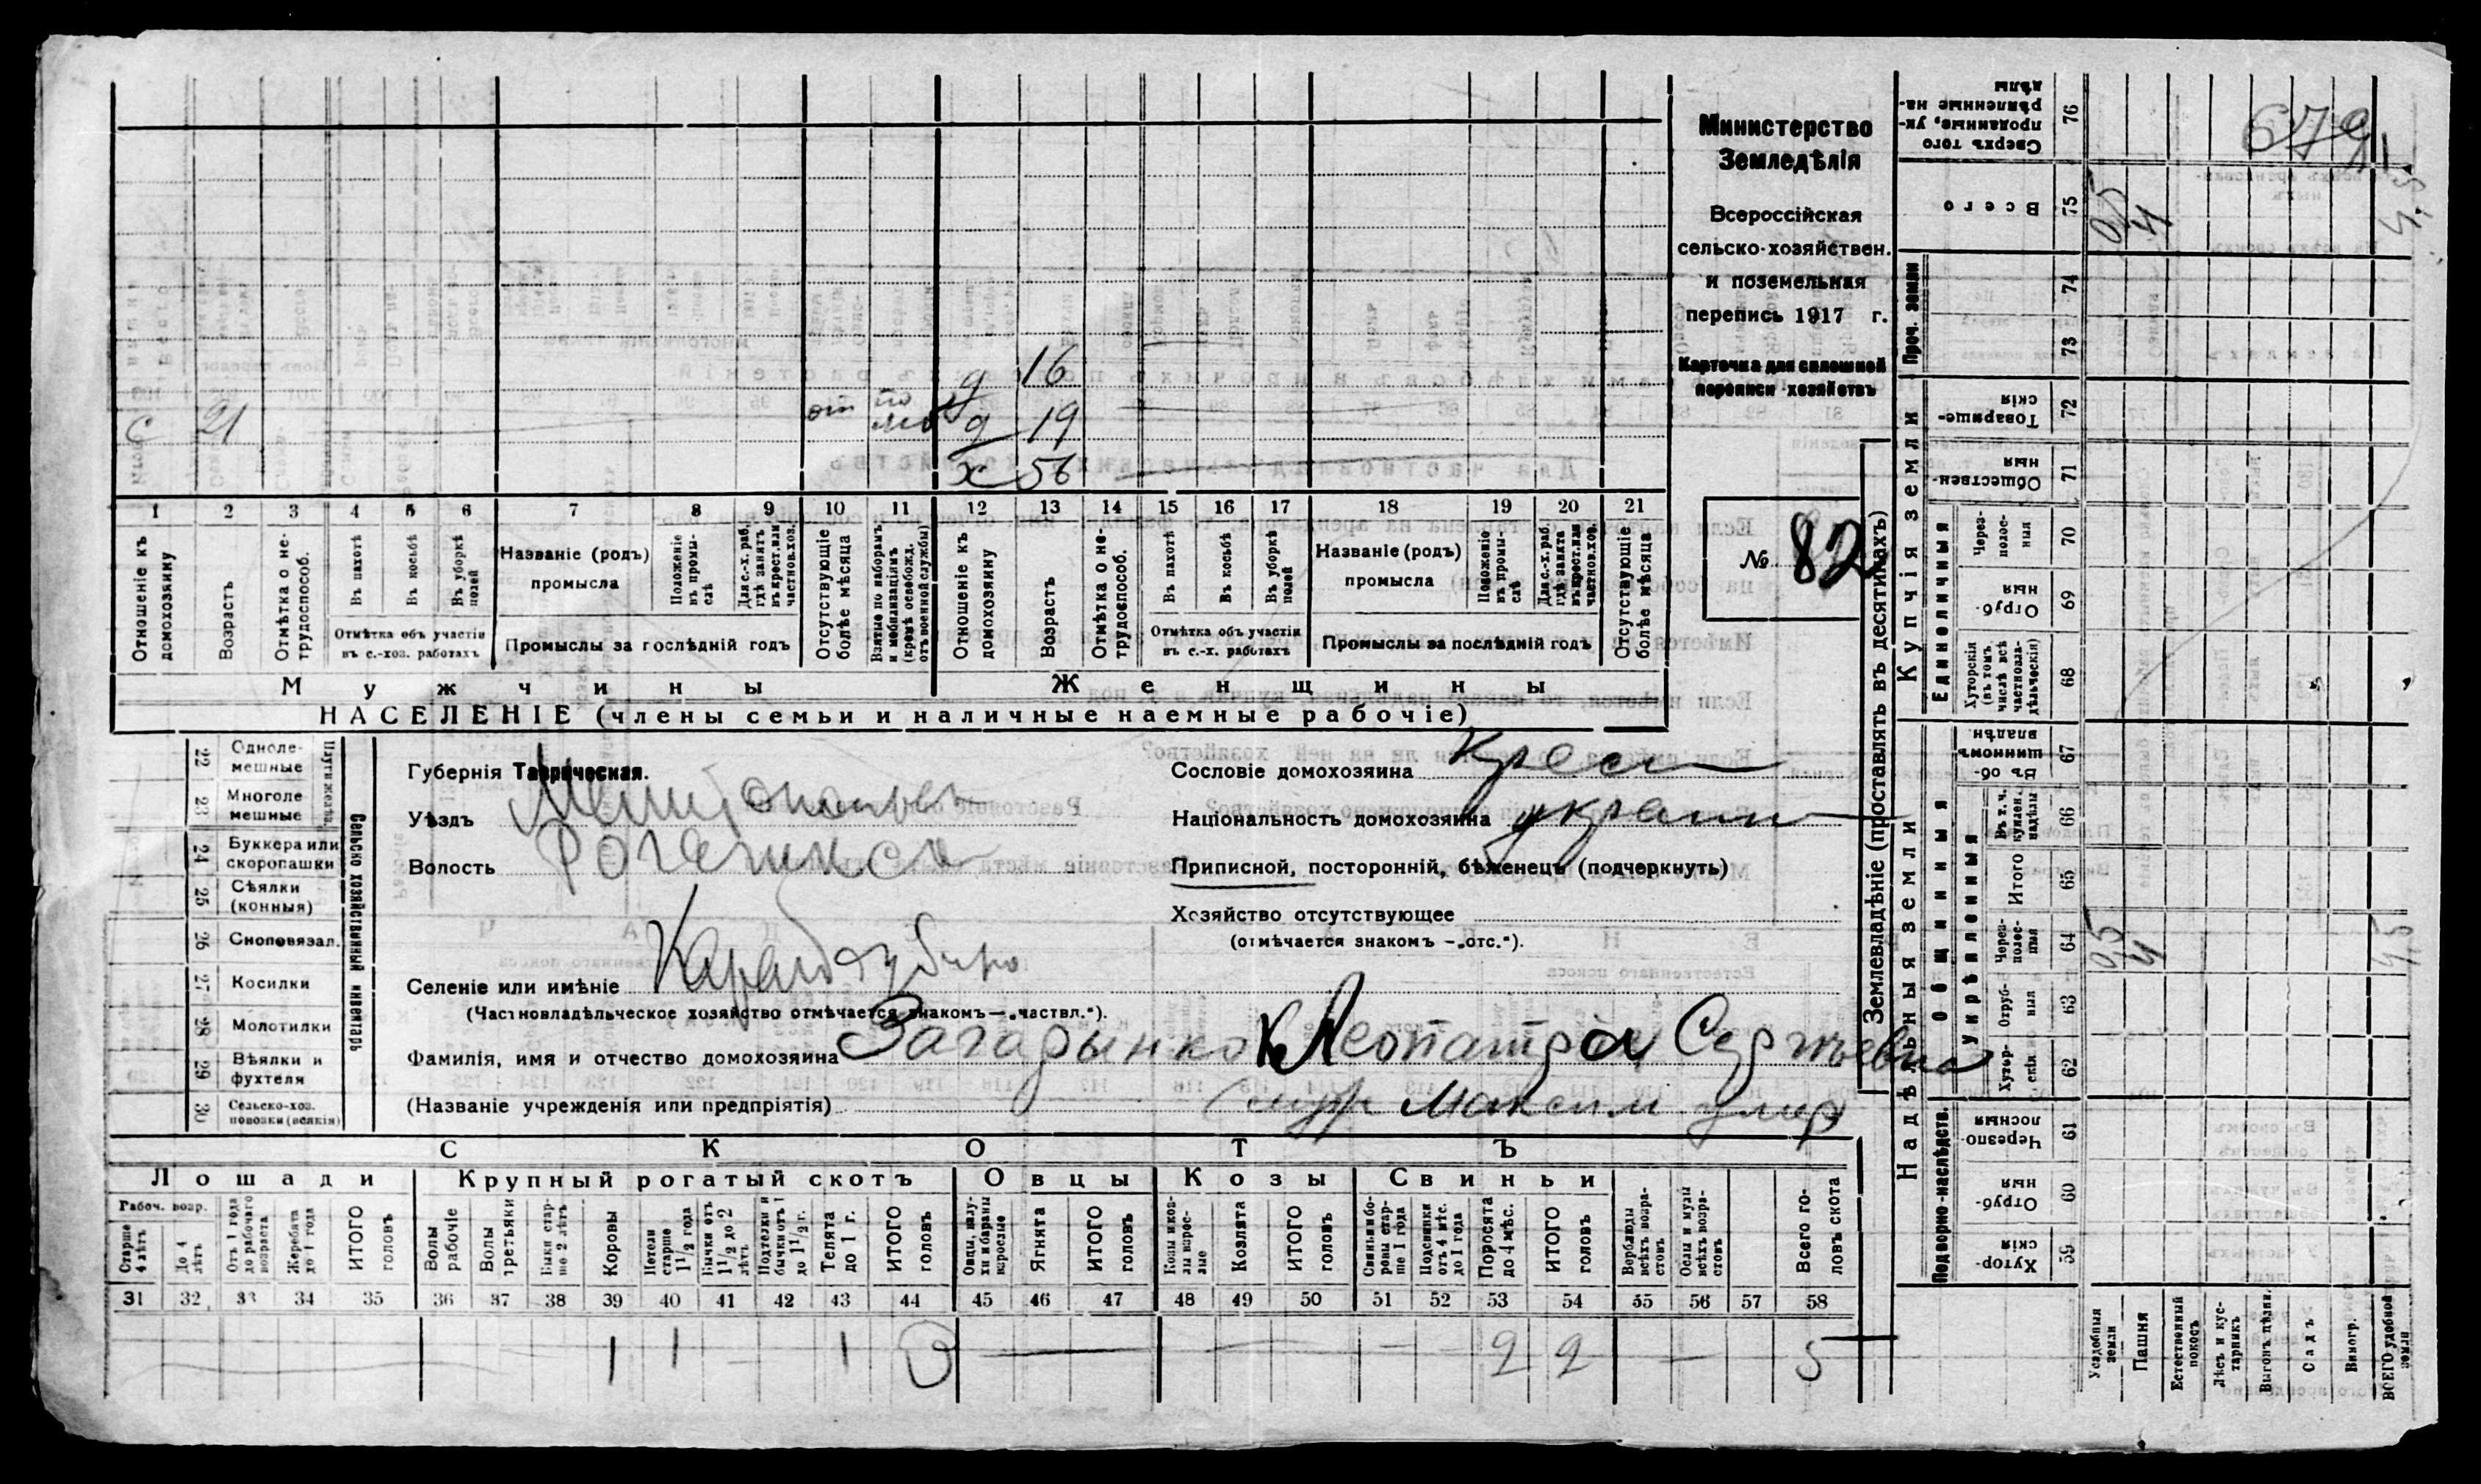 Министерство
Земледѣлія
Всероссійская
сельско-хозяйствен.
и поземельная
перепись 1917 г.
Карточка для сплошной
переписи хозяйствъ
№ 82
679
д 16
с 21 от по моб д 19
х 56
1 2 3 4 5 6 7 8 9 10 11 12 13 14 15 16 17 18 19 20 21
Отношеніе къ домохозяину
Возрастъ
Отмѣтка о нетрудоспособ.
Въ пахотѣ
Въ косьбѣ
Въ уборкѣ полей
Отмѣтка объ участіи въ с.-хоз. работахъ
Названіе (родъ) промысла
Положеніе въ промыслѣ
Для с.-х. раб. гдѣ занятъ въ крест. или частнов. хоз.
Промыслы за послѣдній годъ
Отсутствующіе болѣе мѣсяца
Взятые по наборамъ и мобилизаціямъ (кромѣ освобожд. отъ военной службы)
Отношеніе къ домохозяину
Возрастъ
Отмѣтка о нетрудоспособ.
Въ пахотѣ
Въ косьбѣ
Въ уборкѣ полей
Отмѣтка объ участіи въ с.-х. работахъ
Названіе (родъ) промысла
Положеніе въ промыслѣ
Для с.-х. раб. гдѣ занята въ крест. или частнов. хоз.
Промыслы за послѣдній годъ
Отсутствующіе болѣе мѣсяца
Мужчины Женщины
НАСЕЛЕНІЕ (члены семьи и наличные наемные рабочіе)
Сельско хозяйственный инвентарь
22 Одноле-мешные
23 Многоле мешные
24 Буккера или скоропашки
25 Сѣялки (конныя)
26 Сноповязал.
27 Косилки
28 Молотилки
29 Вѣялки и фухтеля
30 Сельско-хоз. повозки (всякія)
Губернія Таврическая.
Уѣздъ
Волость
Селеніе или имѣніе
(Частновладѣльческое хозяйство отмѣчается знакомъ—„частвл.“).
Фамилія, имя и отчество домохозяина Клеопатра Сергѣевна
(Названіе учрежденія или предпріятія) Максим умер
Сословіе домохозяина крест
Національность домохозяина украин
Приписной, посторонній, бѣженецъ (подчеркнуть)
Хозяйство отсутствующее
(отмѣчается знакомъ —„отс.“).
СКОТЪ
Лошади Крупный рогатый скотъ Овцы Козы Свиньи
Рабоч. возр.
Старше 4 лѣтъ
До 4 лѣтъ
Отъ 1 года до рабочаго возраста
Жеребята до 1 года
ИТОГО головъ
Волы рабочіе
Волы третьяки
Быки старше 2 лѣтъ
Коровы
Нетели старше 1 1/2 года
Бычки отъ 1 1/2 до 2 лѣтъ
Подтелки и бычки отъ 1 до 1 1/2 г.
Телята до 1 г.
ИТОГО головъ
Овцы, валухи и бараны взрослые
Ягнята
ИТОГО головъ
Козы и козлы взрослые
Козлята
ИТОГО головъ
Свиньи и боровы старше 1 года
Подсвинки отъ 4 мѣс. до 1 года
Поросята до 4 мѣс.
ИТОГО головъ
Верблюды всѣхъ возрастовъ
Ослы и мулы всѣхъ возрастовъ
Всего головъ скота
31 32 33 34 35 36 37 38 39 40 41 42 43 44 45 46 47 48 49 50 51 52 53 54 55 56 57 58
1 1 1 3 2 2 5
Землевладѣніе (проставлять въ десятинахъ)
Надѣльныя земли Купчія земли Проч. земли
Подворно-наслѣдств.
Общинныя
Укрѣпленныя
Единоличныя
59 Хуторскія
60 Отрубныя
61 Черезполосныя
62 Хуторскія
63 Отрубныя
64 Черезполосныя
65 Итого
66 Въ т. ч. куплен. надѣлы
67 Въ общинномъ владѣн.
68 Хуторскія (въ томъ числѣ всѣ частновладѣльческія)
69 Отрубныя
70 Черезполосныя
71 Общественныя
72 Товарищескія
73
74
75 Всего
76 Сверхъ того проданные, укрѣпленные надѣлы
Усадебныя земли
Пашня
Естественный покосъ
Лѣсъ и кустарникъ
Выгонъ цѣлин.
Садъ
Виногр.
ВСЕГО удобной земли
05 4 4,5
05 4 4,5